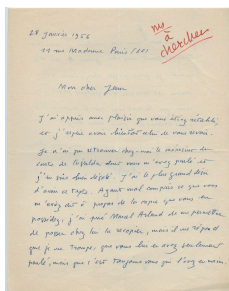 28 janvier 1956
ms
à
chercher
11 rue Madame Paris (6e)
Mon cher Jean
J'ai appris avec plaisir que vous étiez rétabli,
et j'espère avoir bientôt celui de vous revoir.
Je n'ai pu retrouver chez moi le manuscrit du
dont vous m'avez parlé et
j'en suis bien désolé. J'ai le plus grand désir
d'avoir ce texte. Ayant mal compris ce que vous
m'avez dit à propos de la copie que vous en
possédez, j'ai prié Marcel Arland de me permettre
de passer chez lui la recopier, mais il me répond
que je me trompe, que vous lui en avez seulement
parlé, mais que c'est toujours vous qui l'avez en mains.